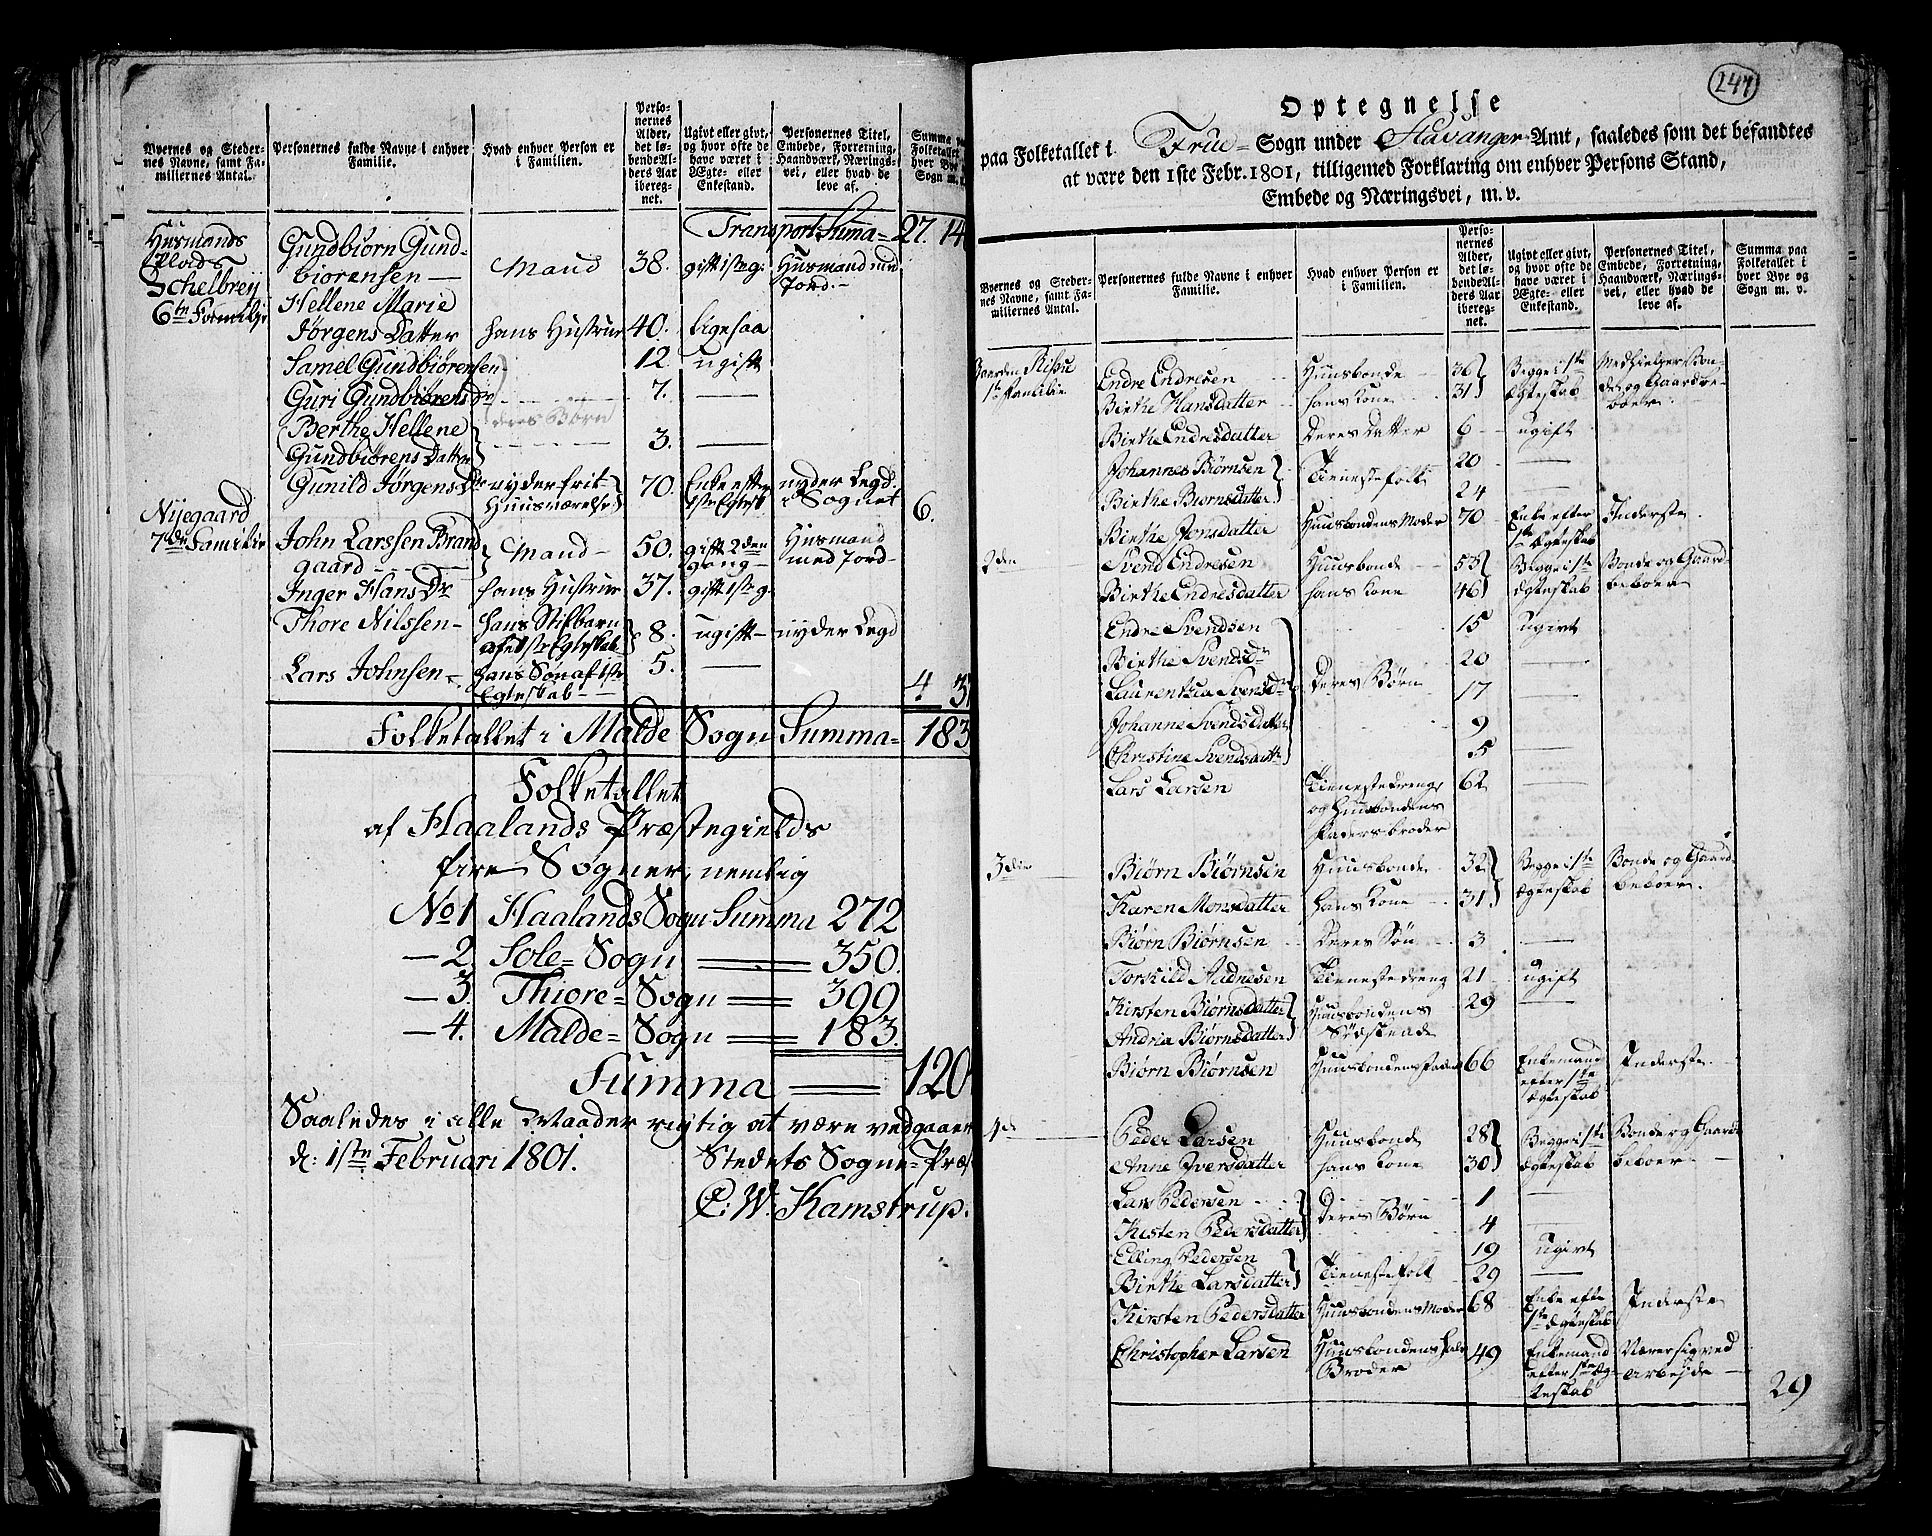 Byernes og Steder-
nes Navne, samt Fa-
miliernes Antal.
Personernes fulde Navne i enhver
Familie.
Hvad enhver Person er
i Familien.
Perso-
nernes
Alder,
det lø-
bende Al-
ders Aar
ibereg-
net.
Ugivt eller givt,
og hvor ofte de
have været i
Ægte- eller
Enkestand.
Personernes Titel,
Embede, Forretning,
Haandværk, Nærings-
vei, eller hvad de
leve af.
Summa paa
Folketallet i
hver Bye
Sogn m. v.
Transport Suma = 27. 14
Husmands
Plads
Schelbreij
6te Familije
Gundbiørn Gund-
biørensen — Mand 38. gift 1ste g: Husmand med
Jord.-
Hellene Marie
Jørgens Datter hans Hustrue 40. ligesaa
Samel Gundbiørensen 12 ugift
Guri Gundbiørens Dr 7. —
deres Børn
Berthe Hellene
Gundbiørens Datter 3. —
Gunild Jørgens Dr nyder frit 70. Enke efter nyder Legd
Huusværelse 1ste Egtesk i Sognet 6.
Nijegaard
7de Familie
John Larssen Brand
gaard Mand — 50. gift 2den Husmand
gang — med Jord
Inger Hans Dr hans Hustrue 37. gift 1ste g
Thore Nilssen — hans Stifbarn
af et 1ste Egteskab 8. ugift — nyder Legd
Lars Johnsen — hans Søn af 1ste 5. —
Egteskab — 4 3
Folketallet i Malde Sogn Summa = 183
Folketallet
af Haalands Præstegields
fire Sogner, nemlig
No 1 Haalands Sogn Summa 272
— 2. Sole = Sogn — 350.
— 3. Thiore = Sogn — 399
— 4. Malde = Sogn — 183.
Summa — 120
Saaledes i alle Maader rigtig at være vedgaaer
d: 1ste Februari 1801. Stedets Sogne = Præst
C. W. Kamstrup.
247
Optegnelse
paa Folketallet i Frue = Sogn under Stavanger Amt, saaledes som det befandtes
at være den 1ste Febr. 1801, tilligemed Forklaring om enhver Persons Stand,
Embede og Næringsvei, m. v.
Byernes og Steder-
nes Navne, samt Fa-
miliernes Antal.
Personernes fulde Navne i enhver
Familie.
Hvad enhver Person er
i Familien.
Perso-
nernes
Alder,
det lø-
bende Al-
ders Aar
ibereg-
net.
Ugivt eller givt,
og hvor ofte de
have været i
Ægte- eller
Enkestand.
Personernes Titel,
Embede, Forretning,
Haandværk, Nærings-
vei, eller hvad de
leve af.
Summa paa
Folketallet i
hver Bye og
Sogn m. v.
Gaarden
1ste Familie
Endre Endresen Huusbonde 36 Begge i 1ste Medhielger Bon-
Birthe Hansdatter hans Kone 31 Ægteskab de og Gaardbe-
boer
Birthe Endresdatter Deres Datter 6 ugift
Johannes Biørnsen Tienestefolk 20 —
Birthe Biørnsdatter 24 —
Birthe Jonsdatter Huusbondens Moder 70 Enke efter Inderste
1ste Ægteskab
2den Svend Endresen Huusbonde 53 Begge i 1ste Bonde og Gaard
Birthe Endresdatter hans Kone 46 Ægteskab beboer
Endre Svendsen 15 ugivt
Birthe Svendsdr 20 —
Laurentzia Svensdr Deres Børn 17 —
Johanne Svendsdatter 9
Christine Svendsdattr 5 —
Lars Larsen Tienestedreng 62 —
og Huusbondens
Fadersbroder
3die Biørn Biørnsen Huusbonde 32 Begge i 1ste Bonde og Gaard
Karen Monsdatter hans Kone 31 Ægteskab beboer.
Biørn Biørnsen Deres Søn 3 —
Torkild Aadnesen Tienestedreng 21 ugift
Kirsten Biørnsdatter Huusbondens 29 —
Andria Biørnsdatter Sødskende
Biørn Biørnsen Huusbondens Fader 66 Enkemand Inderste
efter 1ste
Ægteskab
4de Peder Larsen Huusbonde 28 Begge i 1ste Bonde og Gaard
Anne Iversdatter hans Kone 30 Ægteskab beboer
Lars Pedersen Deres Børn 1 —
Kirsten Pedersdatter 4 —
Elling Pedersen 19 ugivt
Birthe Larsdatter Tienestefolk 29 —
Kirsten Pedersdatter Huusbondens Moder 68 Enke efter Inderste
1ste Ægteskab
Christopher Larsen Huusbondens Halv 49 Enkemand Nærer sig ved
Broder efter 1ste Æg- arbejde
teskab
29